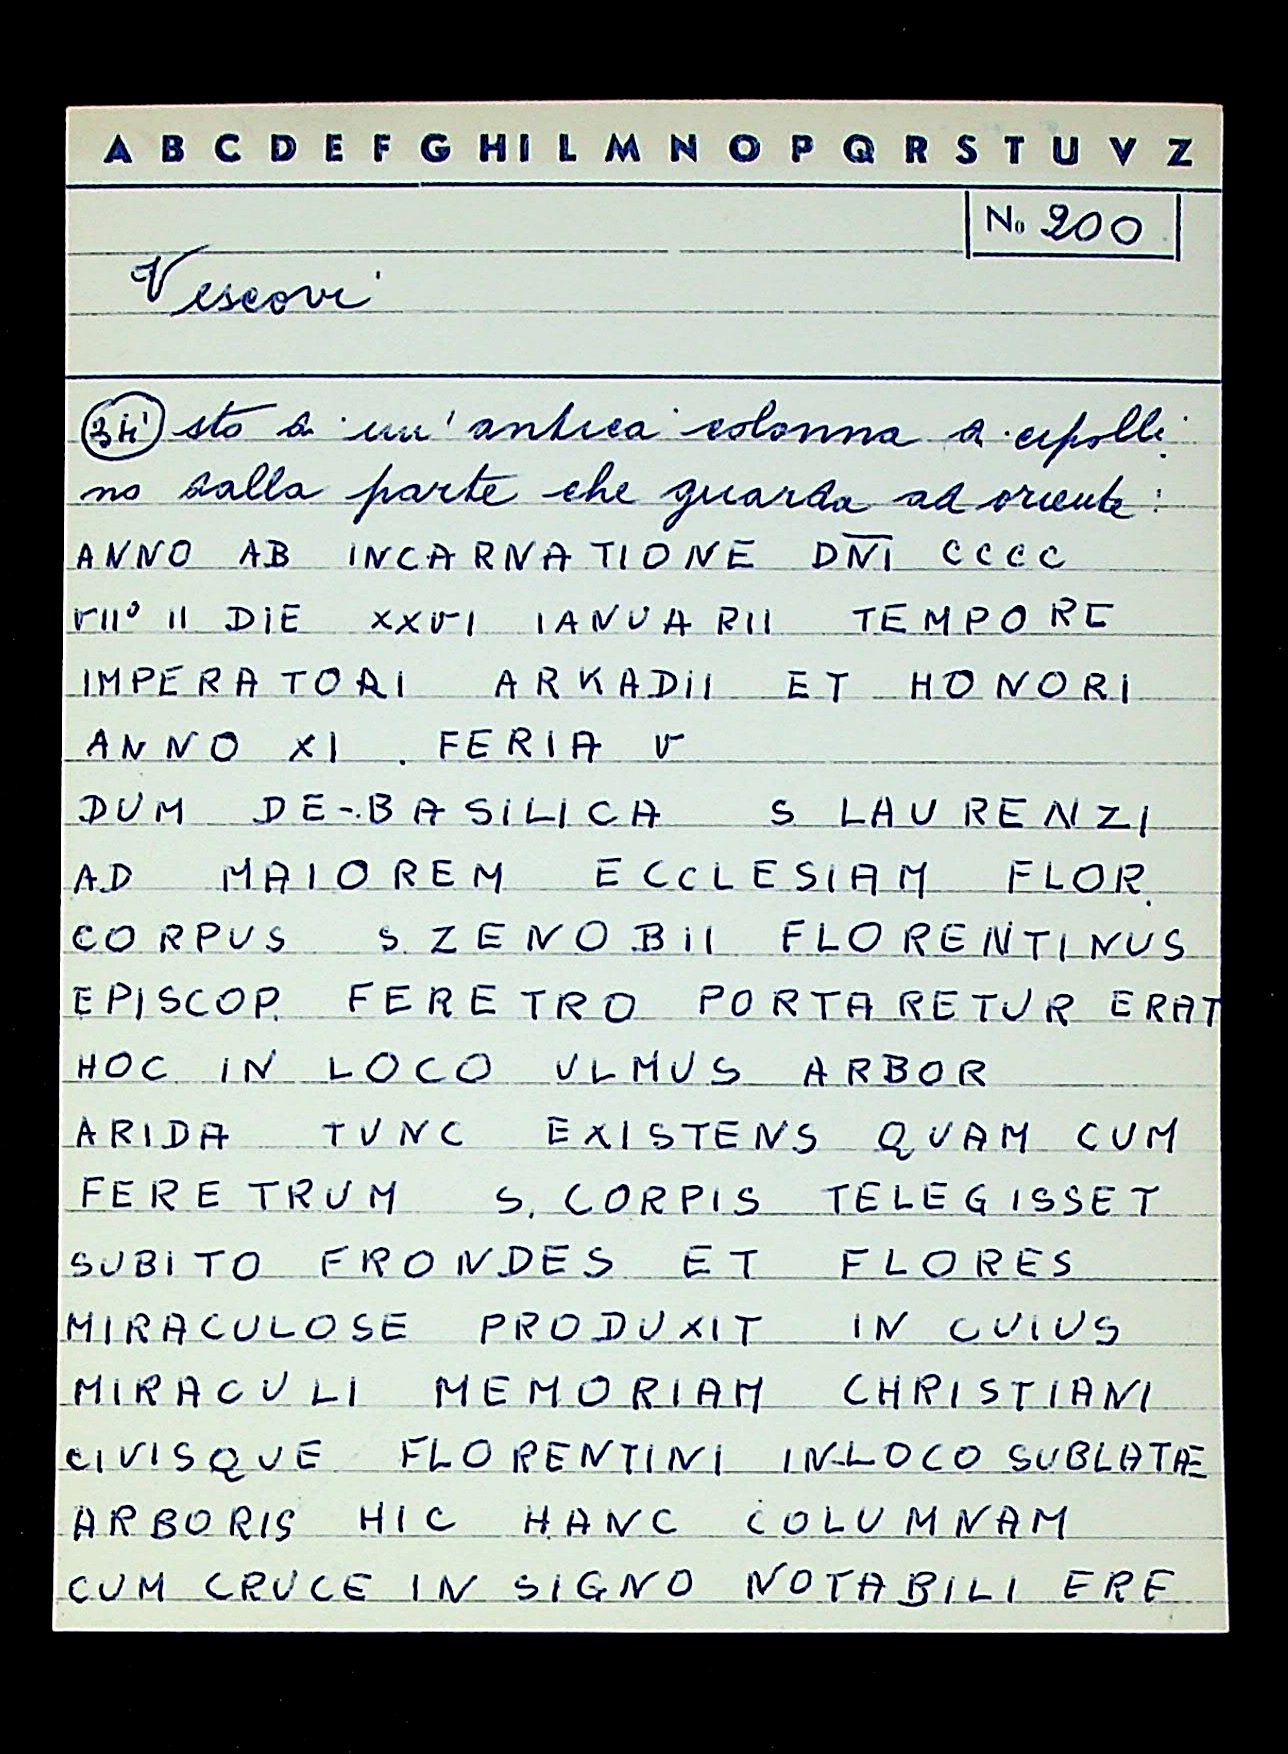 A B C D E F G H I L M N O P Q R S T U V Z
No 200
Vescovi
sto a un' antica colonna di cipolli
no dalla parte che guarda ad oriente:
ANNO AB INCARNATIONE DN̅I̅ CCCC
VIIº II DIE XXVI IANUARII TEMPORE
IMPERATORI ARKADII ET HONORI
ANNO XI. FERIA V
DUM DE-BASILICA S LAURENZI
AD MAIOREM ECCLESIAM FLOR.
CORPUS S. ZENOBII FLORENTINUS
EPISCOP. FERETRO PORTARETUR ERAT
HOC IN LOCO ULMUS ARBOR
ARIDA TUNC EXISTENS QUAM CUM
FERETRUM S. CORPIS TELEGISSET
SUBITO FRONDES ET FLORES
MIRACULOSE PRODUXIT IN CUIUS
MIRACULI MEMORIAM CHRISTIANI
CIVISQUE FLORENTINI IN-LOCO SUBLATÆ
ARBORIS HIC HANC COLUMNAM
CUM CRUCE IN SIGNO NOTABILI ERE